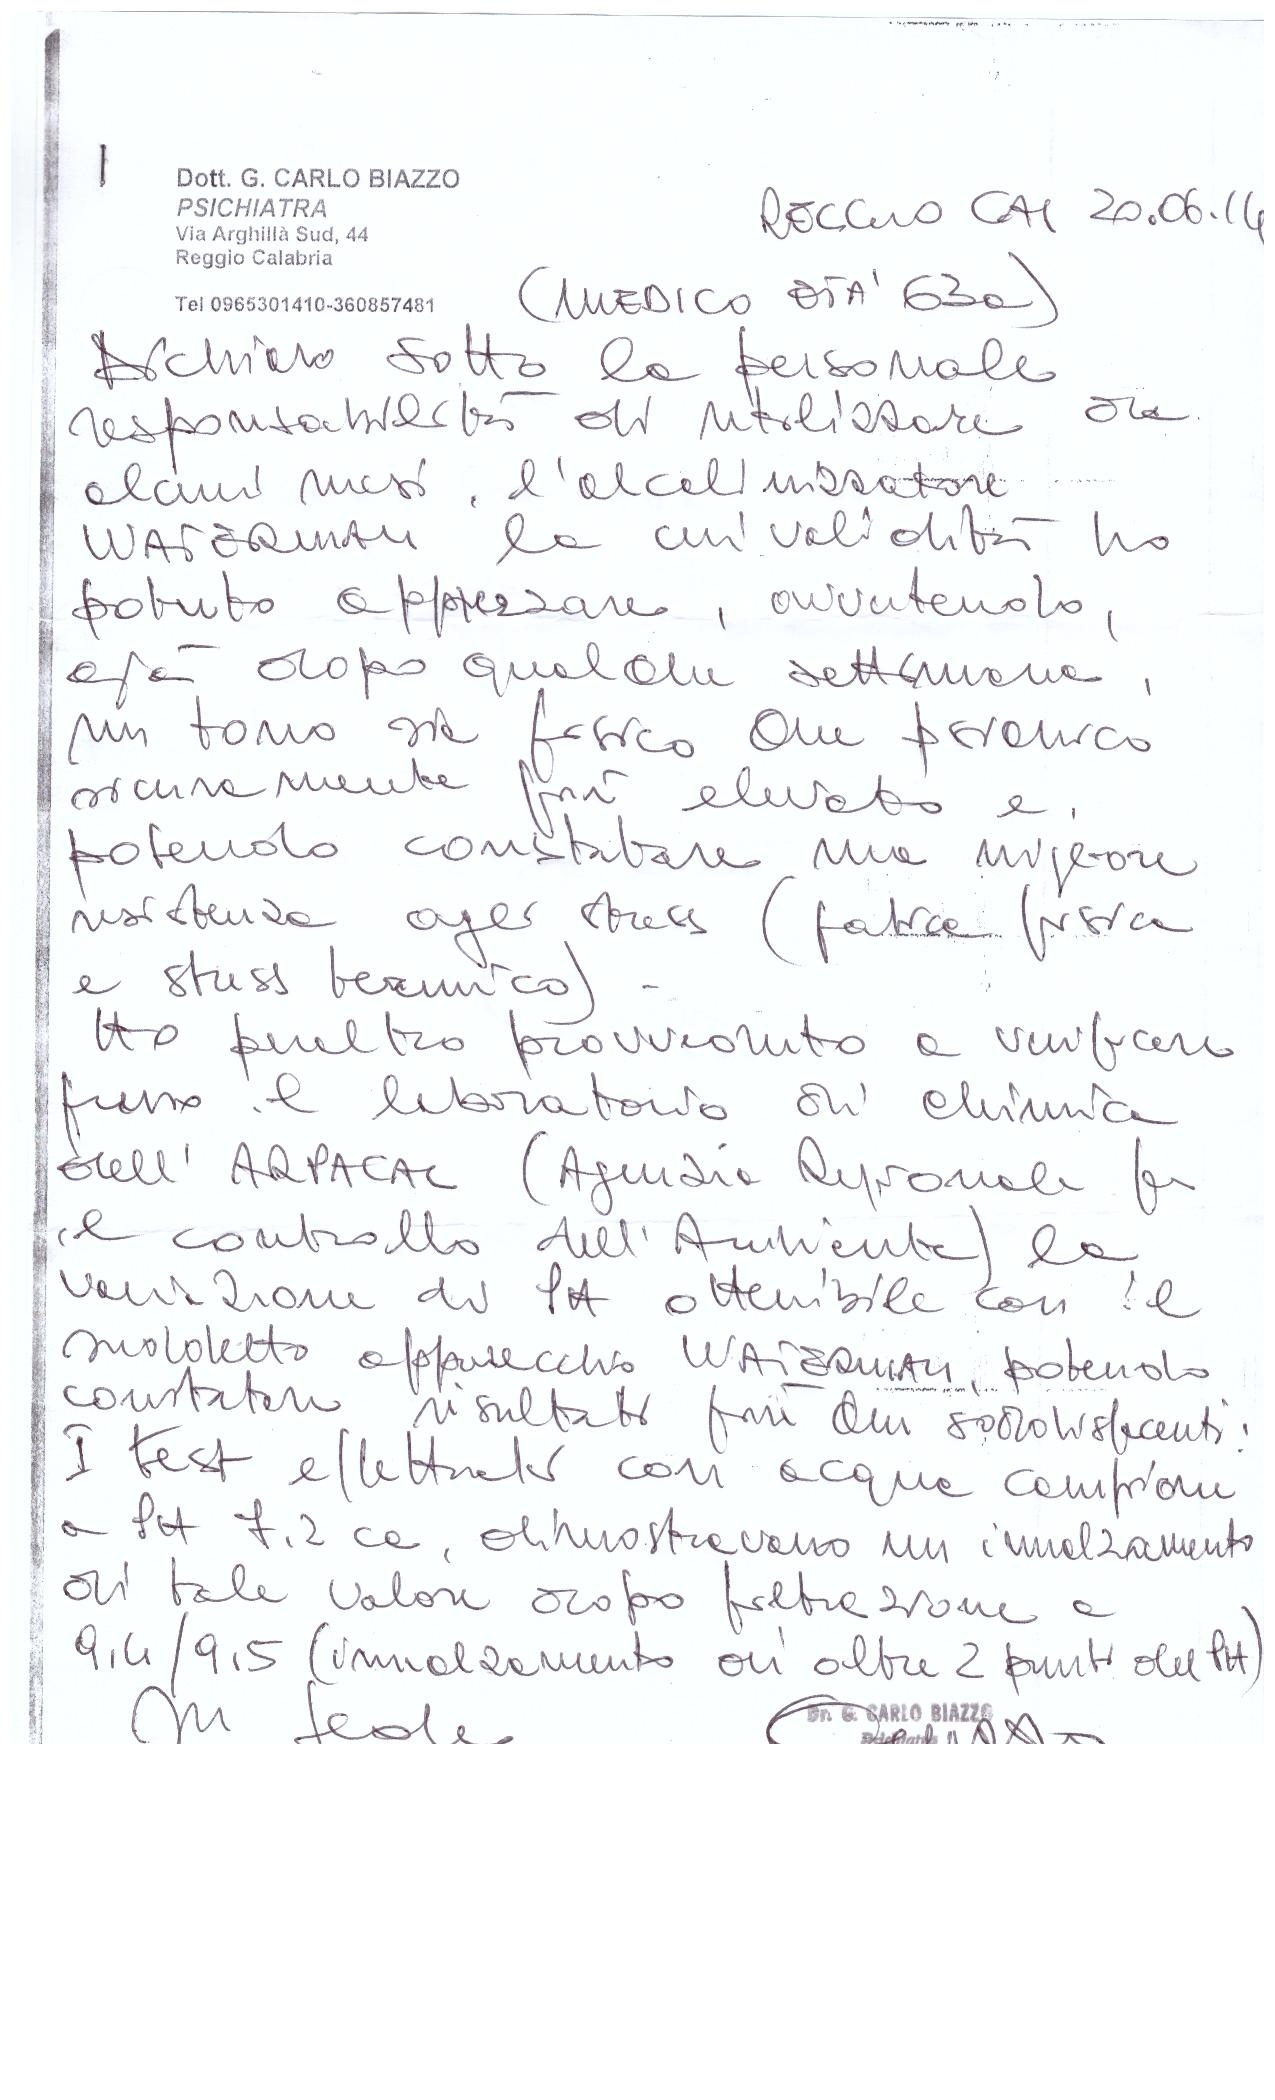 Dott. G. CARLO BIAZZO
PSICHIATRA
Via Arghillà Sud, 44
Reggio Calabria
Tel 0965301410-360857481
REGGIO CAL 20.06.14
(MEDICO ETA' 63a)
Dichiaro sotto la personale
responsabilità di utilizzare da
alcuni mesi, l'alcalinizzatore
WATERMAN la cui validità ho
potuto apprezzare, avvertendo,
già dopo qualche settimana,
un tono sia fisico che psichico
sicuramente più elevato e,
potendo constatare una migliore
resistenza agli stress (fatica fisica
e stress termico) -
Ho peraltro provveduto a verificare
presso il laboratorio di chimica
dell' ARPACAL (Agenzia Regionale per
il controllo dell'Ambiente) la
variazione di PH ottenibile con il
suddetto apparecchio WATERMAN, potendo
constatare risultati più che soddisfacenti:
I test effettuati con acqua campione
a PH 7.2 ca, dimostravano un innalzamento
di tale valore dopo filtrazione a
9,4/9,5 (innalzamento di oltre 2 punti del PH)
In fede
Dr. G. CARLO BIAZZO
Psichiatra